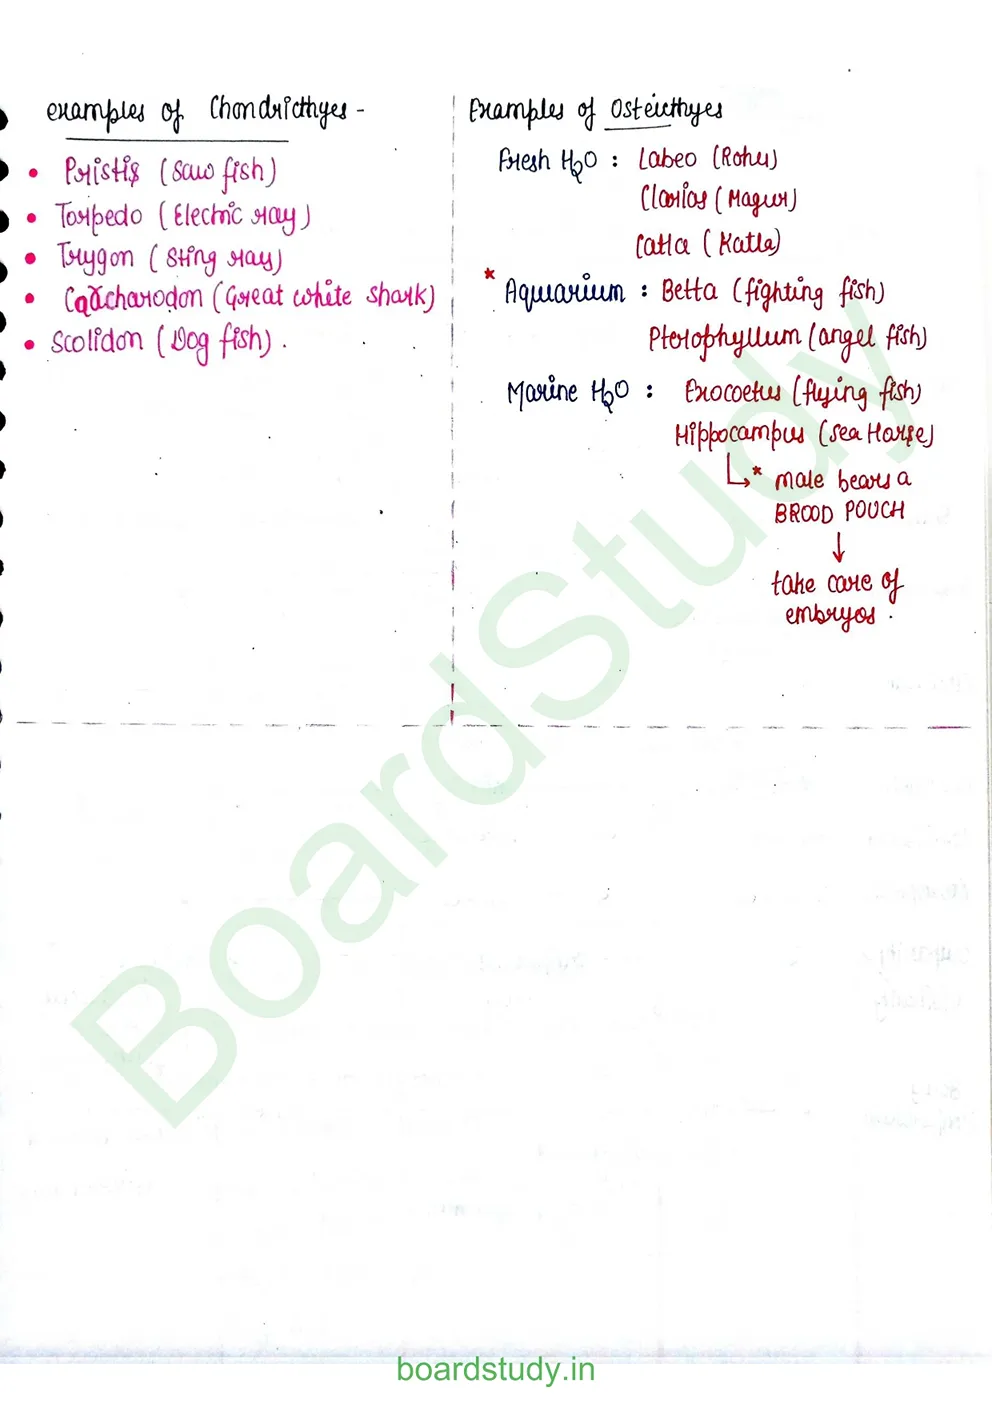 examples of Chondricthyes -
• Pristis (Saw fish)
• Torpedo (Electric ray)
• Trygon (Sting ray)
• Carcharodon (Great white shark)
• Scolidon (Dog fish).
Examples of Osteicthyes
Fresh H2O : Labeo (Rohu)
Clarias (Magur)
Catla (Katla)
* Aquarium : Betta (fighting fish)
Pterophyllum (angel fish)
Marine H2O : Exocoetus (flying fish)
Hippocampus (Sea Horse)
↳ * male bears a
BROOD POUCH
↓
take care of
embryos.
BoardStudy
boardstudy.in